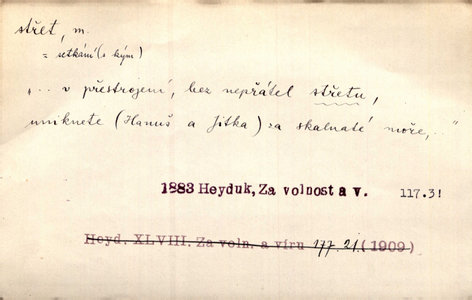 střet, m.
= setkání (s kým)
„... v přestrojení, bez nepřátel střetu,
uniknete (Hanuš a Jitka) za skalnaté moře,..."
1883 Heyduk, Za volnost a v. 117.31
Heyd. XLVIII. Za voln. a víru 177.21. (1909)